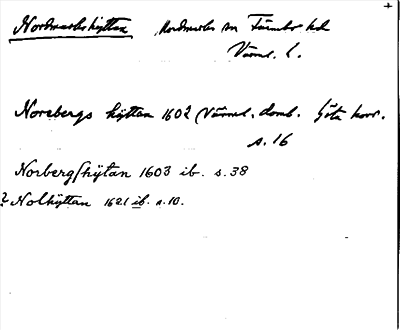 +
Nordmarkshyttan Nordmarks sn Färnebo hd
Värml. l.
Norebergs hÿttan 1602 (Värml. domb. Göta hovr.
s. 16
Norbergſhÿtan 1603 ib. s. 38
? Nolhÿttan 1621 ib. s. 10.